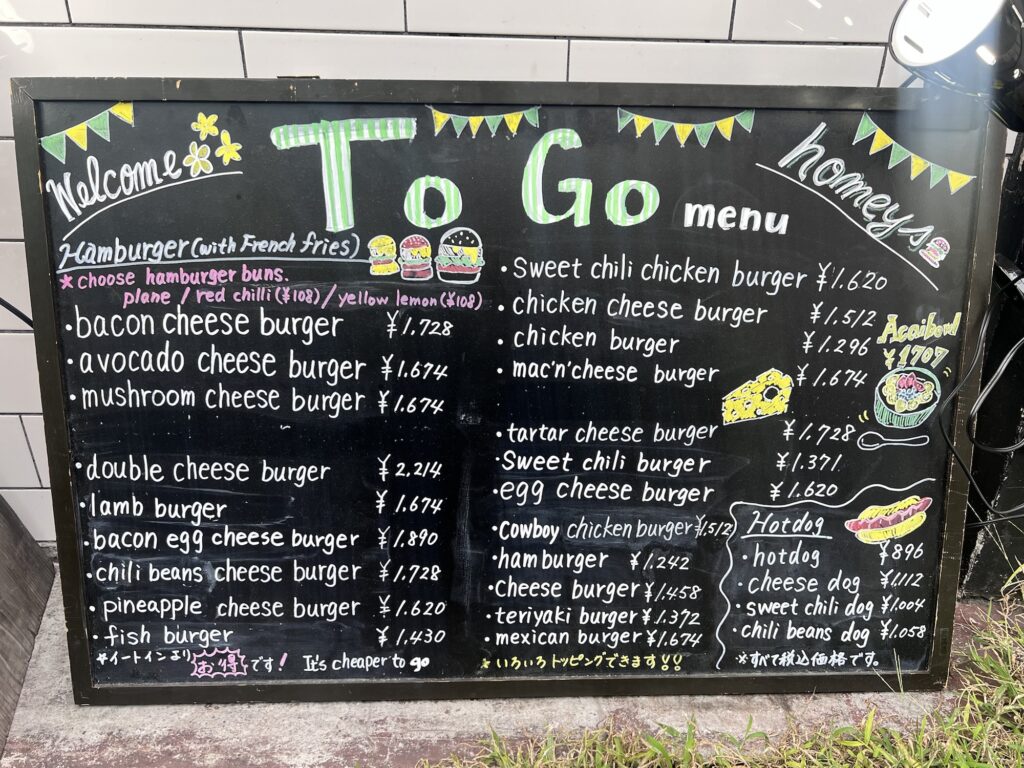 Welcome
To Go menu
homeys
Hamburger (with French fries)
*choose hamburger buns.
plane / red chilli (¥108) / yellow lemon (¥108)
・bacon cheese burger ¥1.728
・avocado cheese burger ¥1.674
・mushroom cheese burger ¥1.674
・double cheese burger ¥2.214
・lamb burger ¥1.674
・bacon egg cheese burger ¥1.890
・chili beans cheese burger ¥1.728
・pineapple cheese burger ¥1.620
・fish burger ¥1.430
*イートインより お得です! It's cheaper to go
・sweet chili chicken burger ¥1.620
・chicken cheese burger ¥1.512
・chicken burger ¥1.296
・mac'n'cheese burger ¥1.674
・tartar cheese burger ¥1.728
・Sweet chili burger ¥1.371
・egg cheese burger ¥1.620
・cowboy chicken burger ¥1,512
・hamburger ¥1.242
・Cheese burger ¥1.458
・teriyaki burger ¥1.372
・mexican burger ¥1.674
*いろいろトッピングできます!!
Acaibowl
¥1707
Hotdog
・hotdog ¥896
・cheese dog ¥1.112
・sweet chili dog ¥1.004
・chili beans dog ¥1.058
※すべて税込価格です。